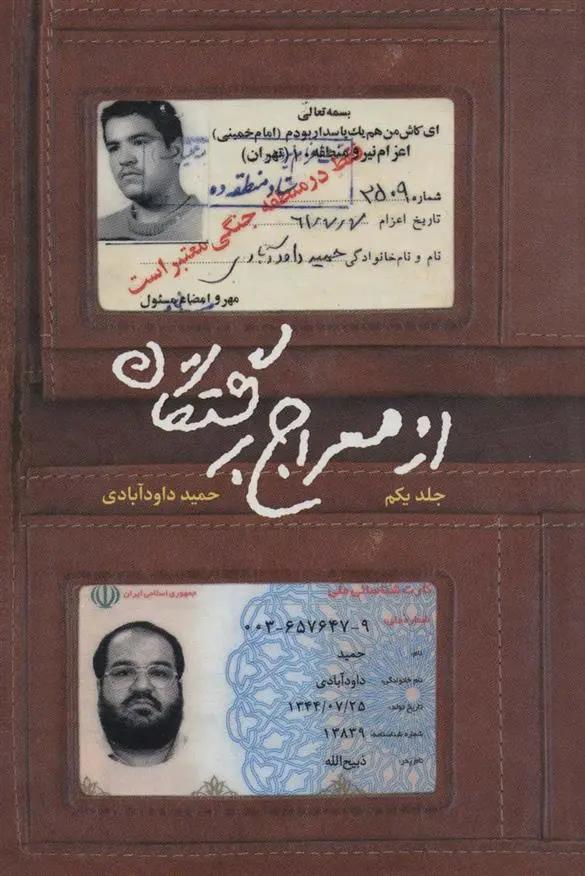 بسمه تعالی
ای کاش من هم یک پاسدار بودم (امام خمینی)
اعزام نیرو منطقه ۱۰ (تهران)
ستاد منطقه ده
فقط در منطقه جنگی معتبر است
شماره ۲۵۰۹
تاریخ اعزام ۶۱/۷/۷
نام و نام خانوادگی حمید داودآبادی
مهر و امضاء مسئول
از معراج برگشتگان
جلد یکم
حمید داودآبادی
جمهوری اسلامی ایران
کارت شناسائی ملی
شماره ملی: ۰۰۳-۶۵۷۶۴۷-۹
نام: حمید
نام خانوادگی: داودآبادی
تاریخ تولد: ۱۳۴۴/۰۷/۲۵
شماره شناسنامه: ۱۳۸۳۹
نام پدر: ذبیح‌الله